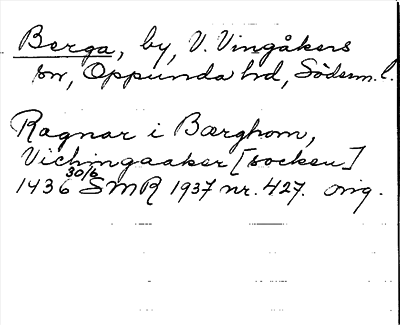 Berga, by, V. Vingåkers
sn, Oppunda hd, Söderm. l.
Ragnar i Bærghom,
Vichingaaker [socken]
1436 30/6 SMR 1937 nr. 427. orig.